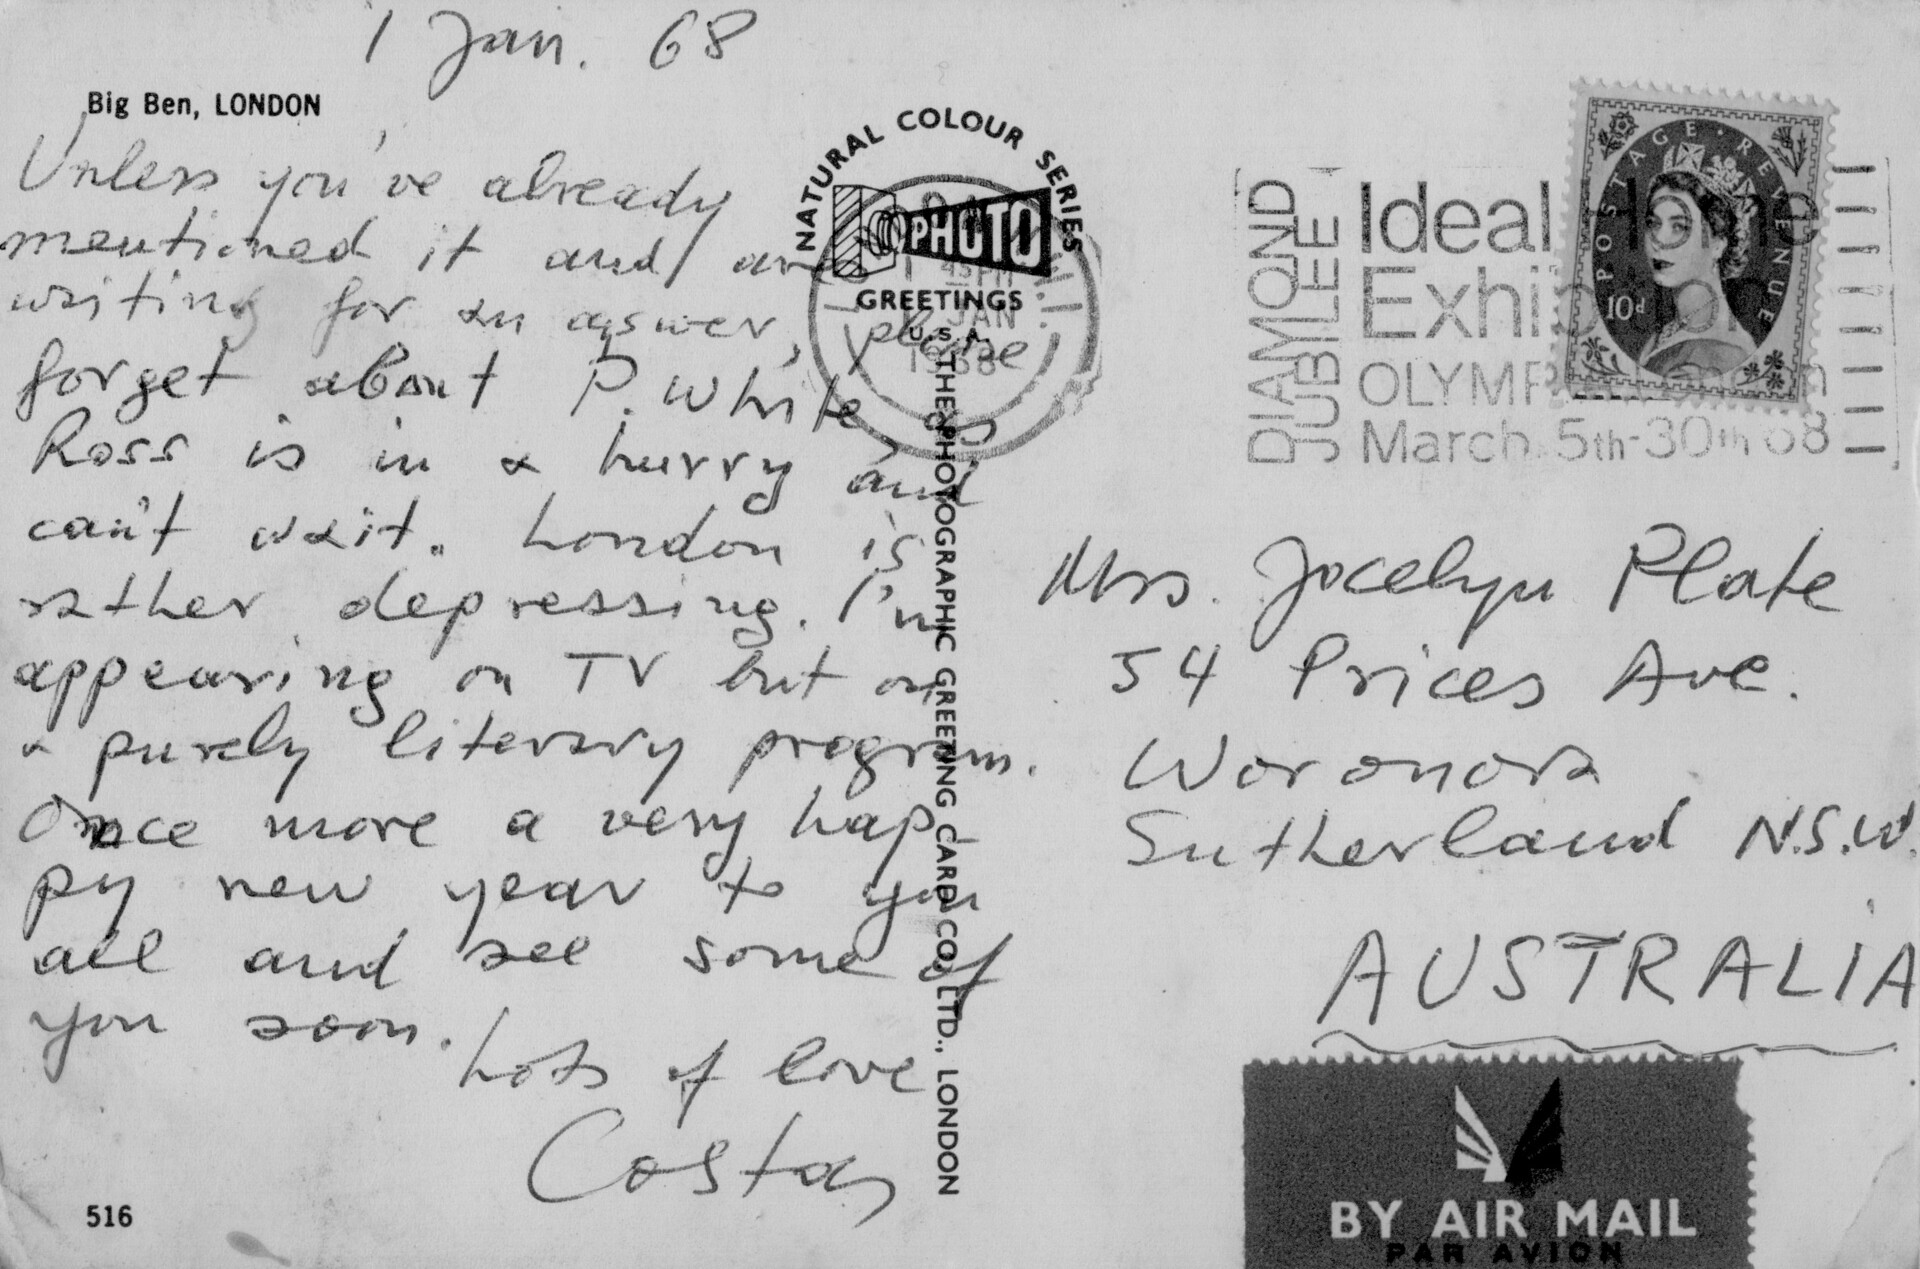 1 Jan. 68
Big Ben, LONDON
Unless you've already
mentioned it and/ are
waiting for an aswer, please
forget about P. White as
Ross is in a hurry and
can't wait. London is
rather depressing. I'm
appearing on TV but on
a purely literary program.
Once more a very hap-
py new year to you
all and see some of
you soon.
Lots of love
Costas
516
NATURAL COLOUR SERIES
PHOTO
GREETINGS
U.S.A.
THE PHOTOGRAPHIC GREETING CARD CO. LTD., LONDON
JAN
1968
DIAMOND
JUBILEE
Ideal Home
Exhibition
March 5th-30th 68
POSTAGE REVENUE
10d
Mrs. Jocelyn Plate
54 Prices Ave.
Woronora
Sutherland N.S.W.
AUSTRALIA
BY AIR MAIL
PAR AVION